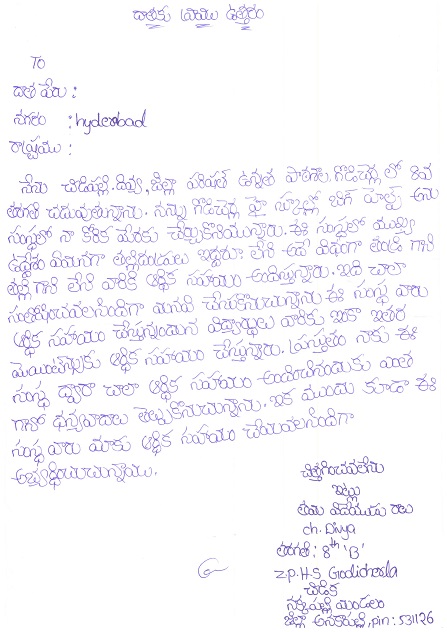 దాతకు వ్రాయు ఉత్తరం
To
దాత పేరు :
నగరం : hyderabad
రాష్ట్రము :
నేను చిడిపల్లి.దివ్య,జిల్లా పరిషత్ ఉన్నత పాఠశాల.గొడిచెర్ల లో 8వ
తరగతి చదువుతున్నాను. నన్ను గొడిచెర్ల హై స్కూల్లో బిగ్ హెల్ప్ అను
సంస్థలో నా కోరిక మేరకు చేర్చుకొనియున్నారు. ఈ సంస్థలో ముఖ్య
ఉద్దేశం ఏమనగా తల్లిదండ్రులు ఇద్దరూ లేని అదే విధంగా తండ్రి గాని
తల్లి గాని లేని వారికి ఆర్థిక సహాయం అందిస్తున్నారు. ఇది చాలా
మనవి చేసుకొనుచున్నాను ఈ సంస్థ వారు
ఆర్థిక సహాయం చేస్తున్నందున విద్యార్థులు వారికి ఇంకా ఇతర
ఆర్థిక సహాయం చేస్తున్నారు. ప్రస్తుతం నాకు ఈ
సంస్థ ద్వారా చాలా ఆర్థిక సహాయం అందించినందుకు ఎంత
గానో ధన్యవాదాలు తెల్పుకొనుచున్నాను. ఇక ముందు కూడా ఈ
సంస్థ వారు మాకు ఆర్థిక సహాయం చేయవలసిందిగా
అభ్యర్థించుచున్నాము.
చిత్తగించవలెను
ఇట్లు
తమ విదేయుడు రాలు
ch. Divya
తరగతి : 8th 'B'
Z.P.H.S Godicherla
చిడిక
నక్కపల్లి మండలం
జిల్లా అనకాపల్లి, pin: 531126